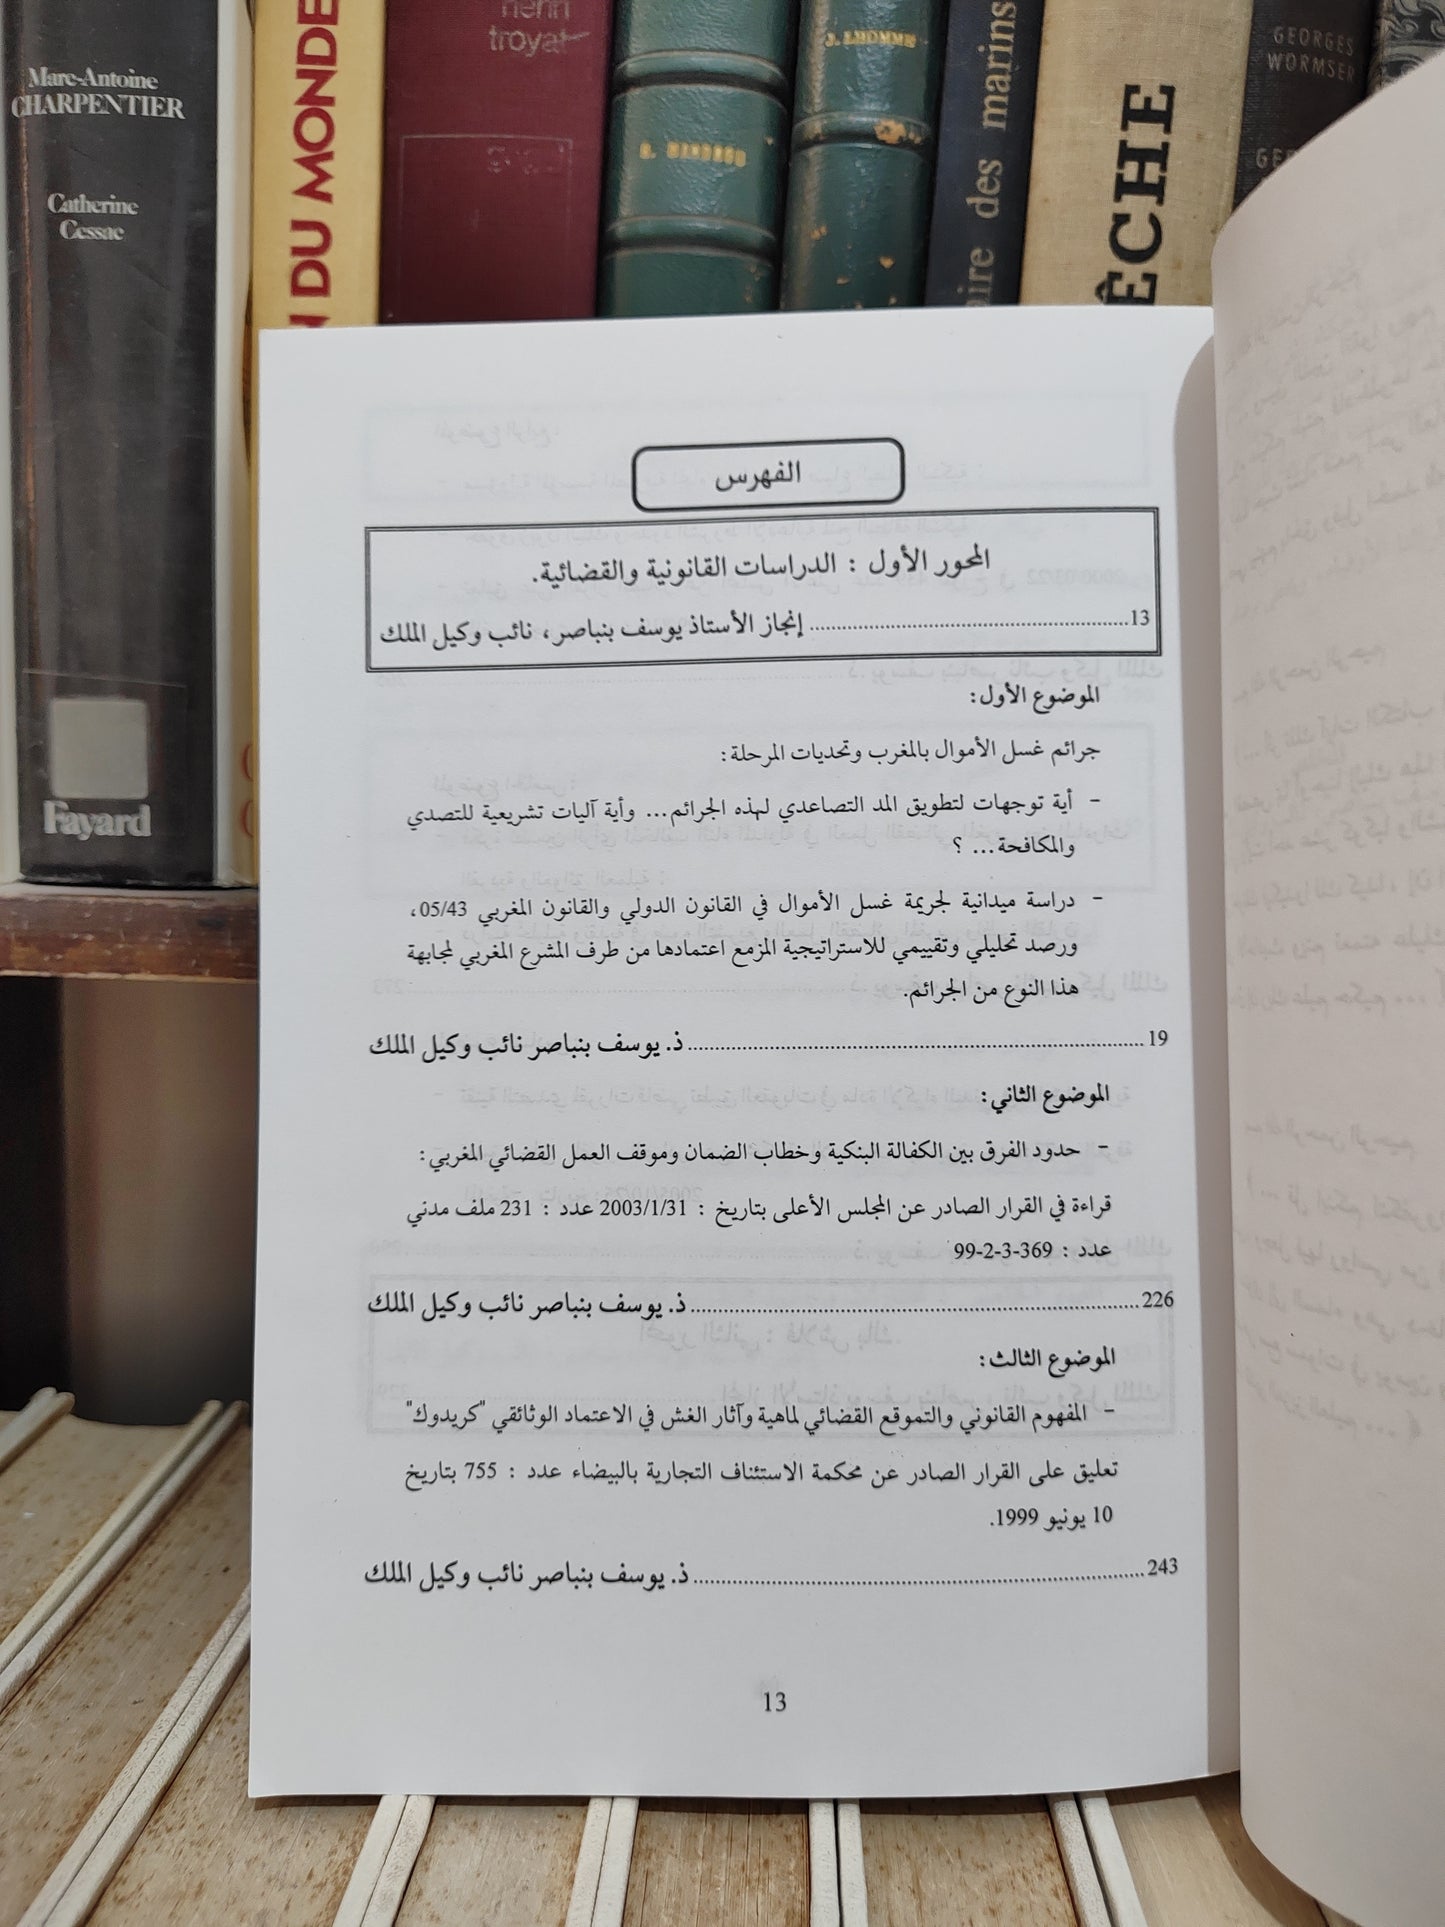 henri
troyat
J. LHOMME
GEORGES
WORMSER
Marc-Antoine
CHARPENTIER
Catherine
Cessac
Fayard
DU MONDE
aire des marins
ÊCHE
الفهرس
المحور الأول : الدراسات القانونية والقضائية.
إنجاز الأستاذ يوسف بنباصر، نائب وكيل الملك ........................................ 13
الموضوع الأول:
جرائم غسل الأموال بالمغرب وتحديات المرحلة:
- أية توجهات لتطويق المد التصاعدي لهذه الجرائم... وأية آليات تشريعية للتصدي
والمكافحة... ؟
- دراسة ميدانية لجريمة غسل الأموال في القانون الدولي والقانون المغربي 05/43،
ورصد تحليلي وتقييمي للاستراتيجية المزمع اعتمادها من طرف المشرع المغربي لمجابهة
هذا النوع من الجرائم.
ذ. يوسف بنباصر نائب وكيل الملك ........................................ 19
الموضوع الثاني:
- حدود الفرق بين الكفالة البنكية وخطاب الضمان وموقف العمل القضائي المغربي:
قراءة في القرار الصادر عن المجلس الأعلى بتاريخ : 2003/1/31 عدد : 231 ملف مدني
عدد : 369-3-2-99
ذ. يوسف بنباصر نائب وكيل الملك ........................................ 226
الموضوع الثالث:
- المفهوم القانوني والتموقع القضائي لماهية وآثار الغش في الاعتماد الوثائقي "كريدوك"
تعليق على القرار الصادر عن محكمة الاستئناف التجارية بالبيضاء عدد : 755 بتاريخ
10 يونيو 1999.
ذ. يوسف بنباصر نائب وكيل الملك ........................................ 243
13